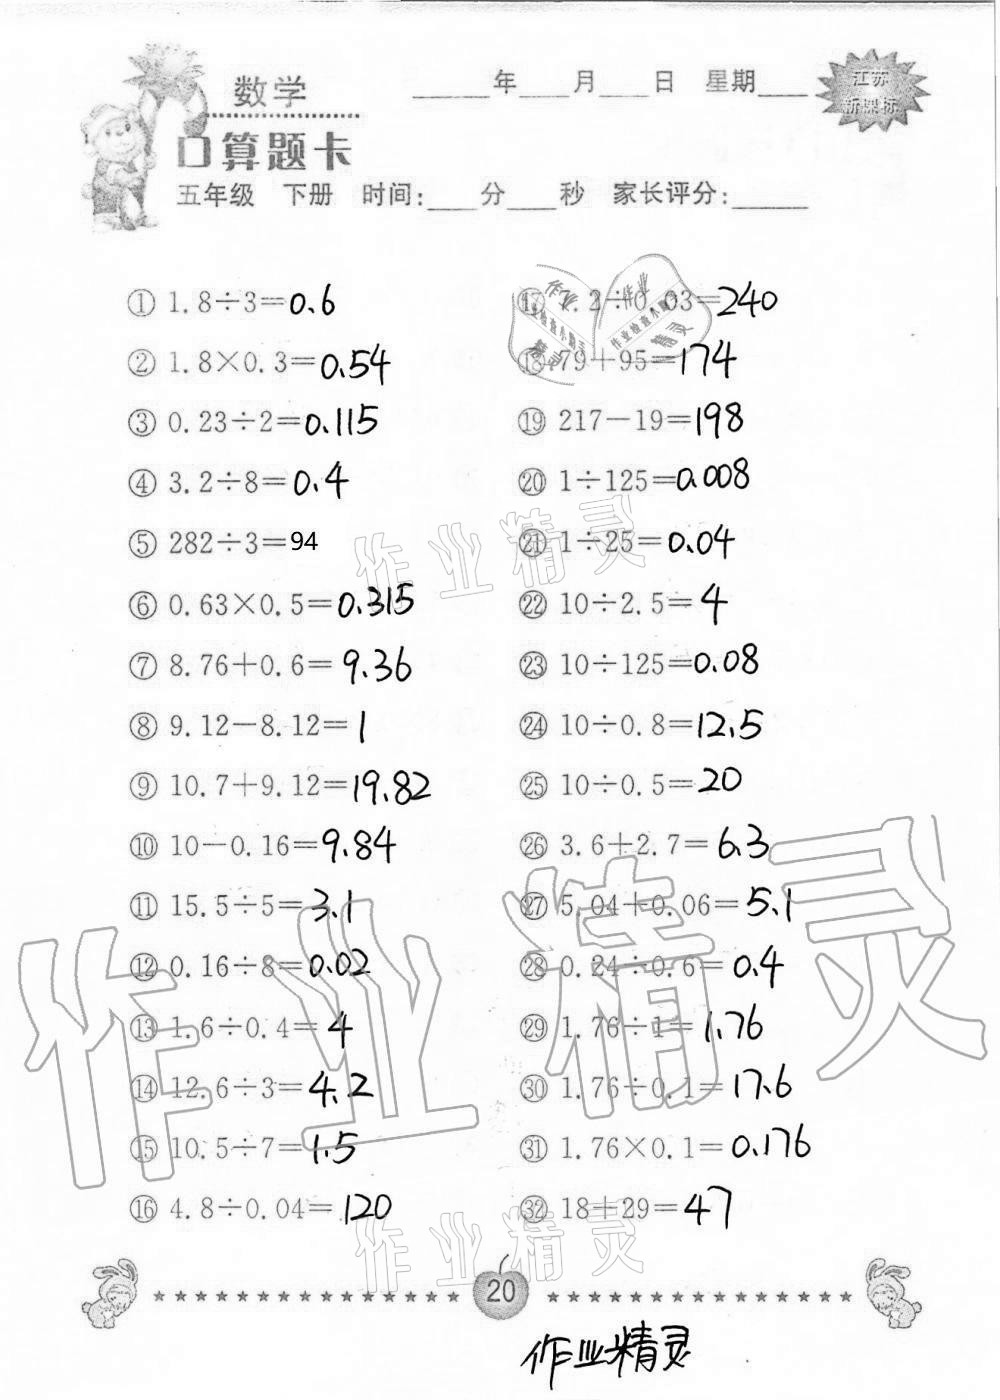 数学
____年____月____日 星期____
江苏
新课标
口算题卡
五年级 下册 时间:____分____秒 家长评分:____
① 1.8÷3=0.6
② 1.8×0.3=0.54
③ 0.23÷2=0.115
④ 3.2÷8=0.4
⑤ 282÷3=94
⑥ 0.63×0.5=0.315
⑦ 8.76+0.6=9.36
⑧ 9.12-8.12=1
⑨ 10.7+9.12=19.82
⑩ 10-0.16=9.84
⑪ 15.5÷5=3.1
⑫ 0.16÷8=0.02
⑬ 1.6÷0.4=4
⑭ 12.6÷3=4.2
⑮ 10.5÷7=1.5
⑯ 4.8÷0.04=120
⑰ 7.2÷0.03=240
⑱ 79+95=174
⑲ 217-19=198
⑳ 1÷125=0.008
㉑ 1÷25=0.04
㉒ 10÷2.5=4
㉓ 10÷125=0.08
㉔ 10÷0.8=12.5
㉕ 10÷0.5=20
㉖ 3.6+2.7=6.3
㉗ 5.04+0.06=5.1
㉘ 0.24÷0.6=0.4
㉙ 1.76÷1=1.76
㉚ 1.76÷0.1=17.6
㉛ 1.76×0.1=0.176
㉜ 18+29=47
作业精灵
作业精灵
作业精灵
20
作业精灵